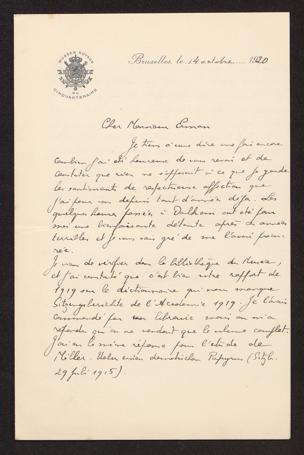 MUSÉES ROYAUX
DU
CINQUANTENAIRE
Bruxelles, le 14 octobre 1920
Cher Monsieur Erman
Je tiens à vous dire une fois encore
combien j'ai été heureux de vous revoir et de
constater que rien ne s'opposait à ce que je garde
les sentiments de respectueuse affection que
j'ai pour vous depuis tant d'années déjà. Les
quelques heures passées à Dahlem ont été pour
moi une bienfaisante détente après des années
terribles et je vous sais gré de me l'avoir procurée.
Je viens de vérifier dans la bibliothèque du Musée,
et j'ai constaté que c'est bien votre rapport de
1919 sur le dictionnaire qui nous manque
Sitzungsberichte de l'Académie 1919. Je l'avais
commandé par un libraire mais on m'a
répondu qu'on ne vendait que le volume complet.
J'ai eu la même réponse pour l'étude de
Möller. Ueber einen demotischen Papyrus (Sitzb.
29 Juli 1915).